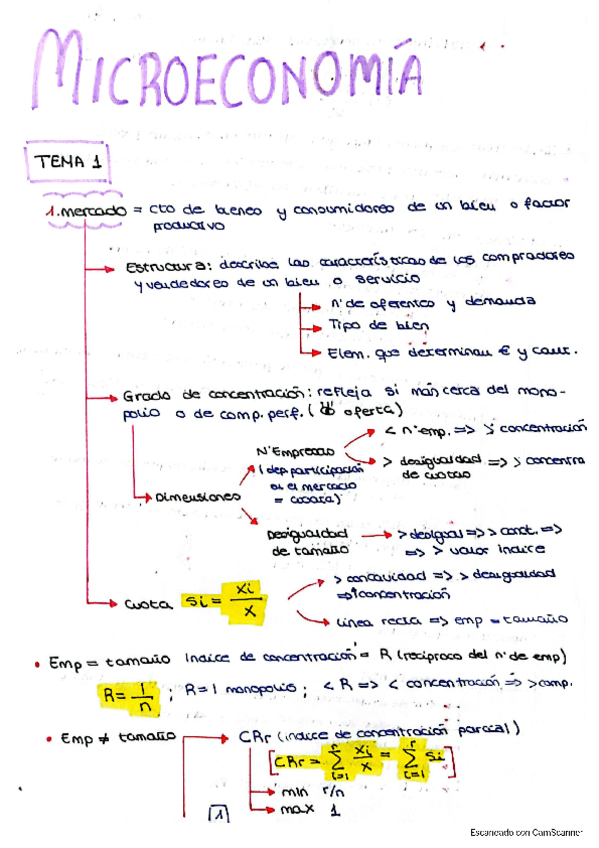 MICROECONOMÍA
TEMA 1
1. mercado = cto de bienes y consumidores de un bien o factor
productivo
Estructura: describe las características de los compradores
y vendedores de un bien o servicio
nº de oferentes y demanda
Tipo de bien
Elem. que determinan € y cant.
Grado de concentración: refleja si más cerca del mono-
polio o de comp. perf. ( oferta)
Nº Empresas
(dep participación
en el mercado
= cuota)
< nº emp. => > concentración
> desigualdad => > concentra
de cuotas
Dimensiones
Desigualdad
de tamaño
> desigual => > conct. =>
=> > valor índice
Cuota Si = xi / x
> concavidad => > desigualdad
=> ↑ concentración
Línea recta => emp = tamaño
• Emp = tamaño Índice de concentración = R (recíproco del nº de emp)
R = 1 / n ; R = 1 monopolio ; < R => < concentración => > comp.
• Emp ≠ tamaño
CRr (índice de concentración parcial)
[CRr = r Σ i=1 xi / x = r Σ i=1 Si]
min r/n
max 1
1
Escaneado con CamScanner